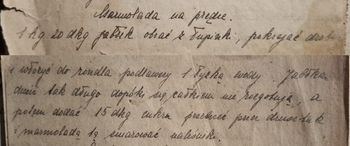 Marmolada na prędce.
1 kg 20 dkg jabłek obrać z łupinki, pokrajać drobno
i włożyć do rondla podlawszy 1 łyżką wody. Jabłka
dusić tak długo dopóki się całkiem nie rozgotują, a
potem dodać 15 dkg cukru przetrzeć przez
i marmoladą tą smarować naleśniki.